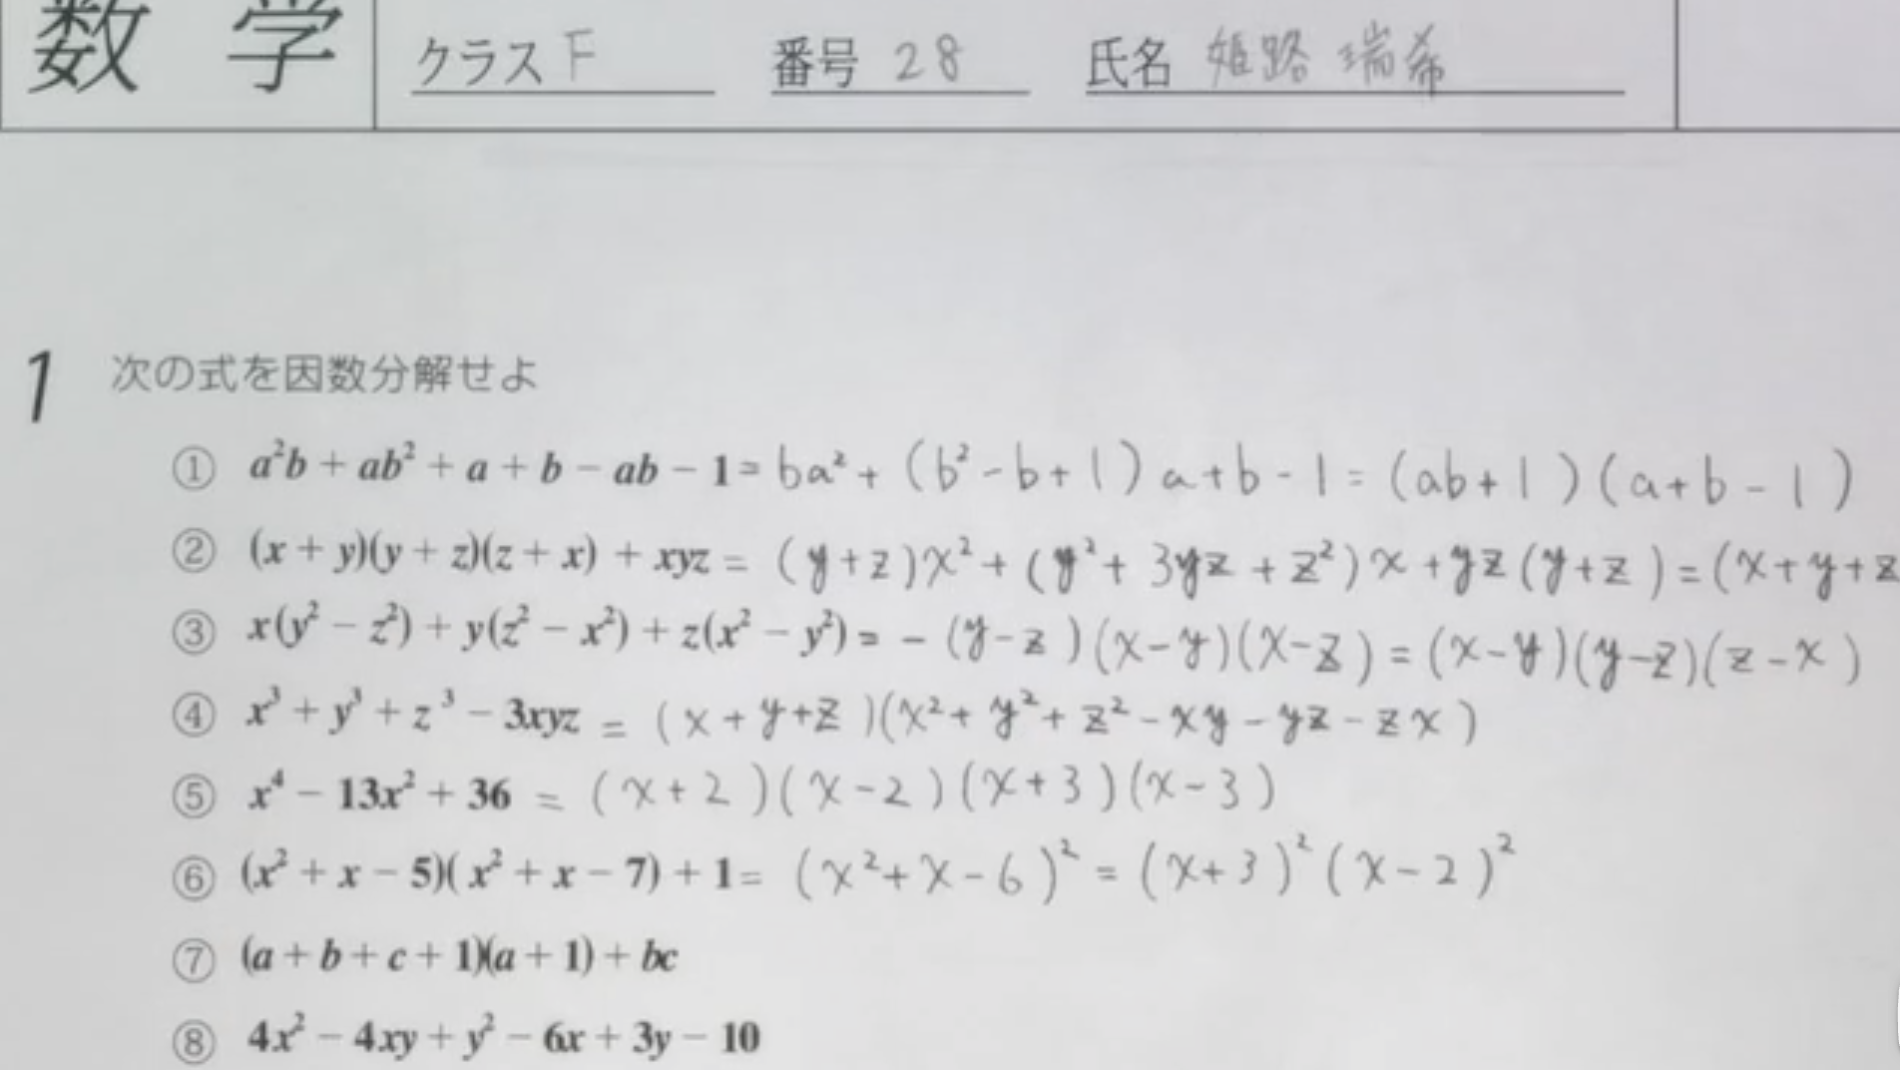 数学 クラス F 番号 28 氏名 姫路 瑞希
1 次の式を因数分解せよ
① a²b + ab² + a + b − ab − 1 = ba² + (b² - b + 1)a + b - 1 = (ab + 1)(a + b - 1)
② (x + y)(y + z)(z + x) + xyz = (y + z)x² + (y² + 3yz + z²)x + yz(y + z) = (x + y + z
③ x(y² − z²) + y(z² − x²) + z(x² − y²) = -(y - z)(x - y)(x - z) = (x - y)(y - z)(z - x)
④ x³ + y³ + z³ − 3xyz = (x + y + z)(x² + y² + z² - xy - yz - zx)
⑤ x⁴ − 13x² + 36 = (x + 2)(x - 2)(x + 3)(x - 3)
⑥ (x² + x − 5)(x² + x − 7) + 1 = (x² + x - 6)² = (x + 3)²(x - 2)²
⑦ (a + b + c + 1)(a + 1) + bc
⑧ 4x² − 4xy + y² − 6x + 3y − 10